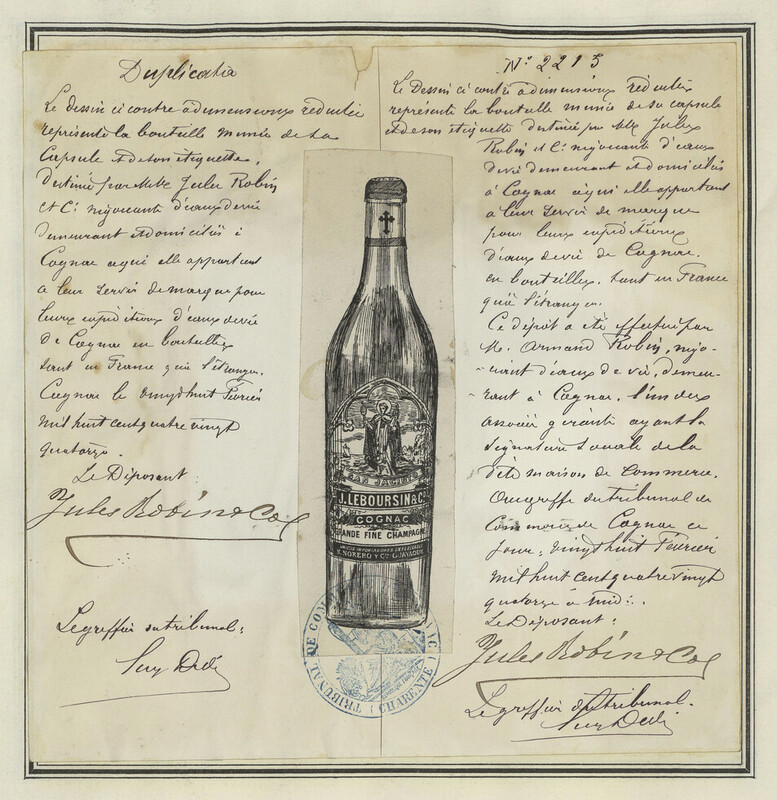 Duplicata
Le dessin ci contre à dimensions réduites
représente la bouteille munie de sa
Capsule et de son étiquette,
destinée par MMrs Jules Robin
et Cie négociants d'eaux de vie
demeurant et domiciliés à
Cognac à qui elle appartient
à leur servir de marque pour
leurs expéditions d'eaux de vie
de Cognac en bouteilles
tant en France qu'à l'étranger.
Cognac le vingt huit Février
mil huit cent quatre vingt
quatorze.
Le Déposant :
Jules Robin & Co
Le greffier du tribunal :
SAN JACINTO
J. LEBOURSIN & Co
COGNAC
GRANDE FINE CHAMPAGNE
UNICOS IMPORTADORES
NORERO Y Cie GUAYAQUIL
TRIBUNAL DE COMMERCE
COGNAC
(CHARENTE)
No 2215
Le Dessin ci contre à dimensions réduites
représente la bouteille munie de sa capsule
et de son étiquette destinée par MM Jules
Robin et Cie négociants d'eaux
de vie demeurant et domiciliés
à Cognac à qui elle appartient
à leur servir de marque
pour leurs expéditions
d'eaux de vie de Cognac.
en bouteilles, tant en France
qu'à l'étranger.
Ce dépôt a été effectué par
M. Armand Robin, négo-
ciant d'eaux de vie, demeu-
rant à Cognac, l'un des
associés gérants ayant la
signature sociale de la
dite maison de Commerce.
Au greffe du tribunal de
Commerce de Cognac ce
jour, vingt huit Février
mil huit cent quatre vingt
quatorze à midi.
Le Déposant :
Jules Robin & Co
Le greffier du tribunal.